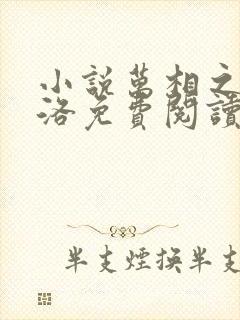 小説萬相之
洛免費閱讀
半支煙換半支